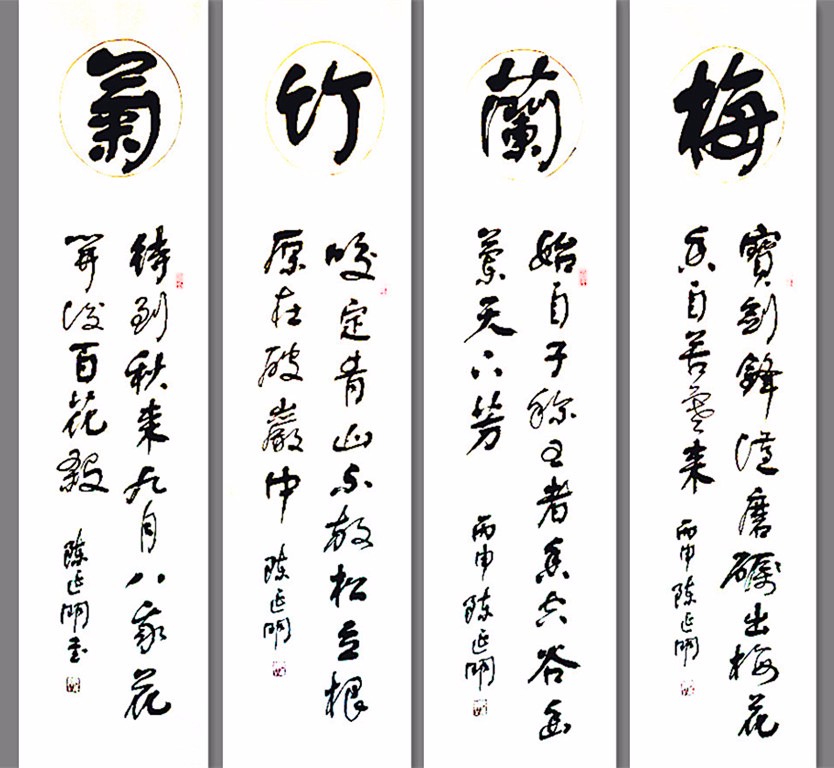 梅
寶劍鋒從磨礪出梅花
香自苦寒来
丙申陈延明
蘭
始自子称王者香空谷幽
蘭天下芳
丙申陈延明
竹
咬定青山不放松立根
原在破巖中
陈延明
菊
待到秋来九月八我花
開後百花殺
陈延明书